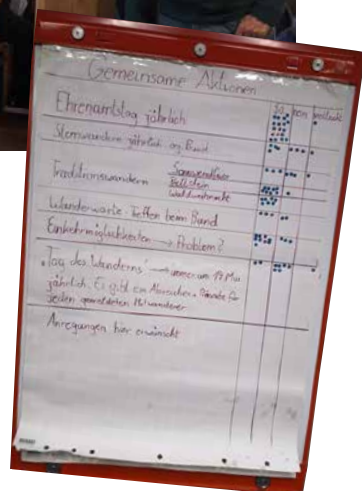 Gemeinsame Aktionen
ja nein vielleicht
Ehrenamtstag jährlich
Sternwandern jährlich Bund
Traditionswandern
Wanderwarte-Treffen beim Bund
Einkehrmöglichkeiten → Problem?
"Tag des Wanderns" → immer am 14. Mai
jährlich. Es gibt ein Abzeichen für
jeden gemeldeten Mitwanderer
Anregungen hier erwünscht